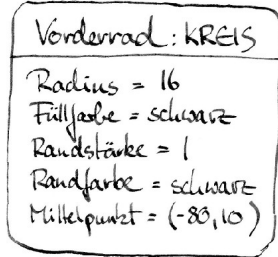 Vorderrad : KREIS
Radius = 16
Füllfarbe = schwarz
Randstärke = 1
Randfarbe = schwarz
Mittelpunkt = (-80, 10)